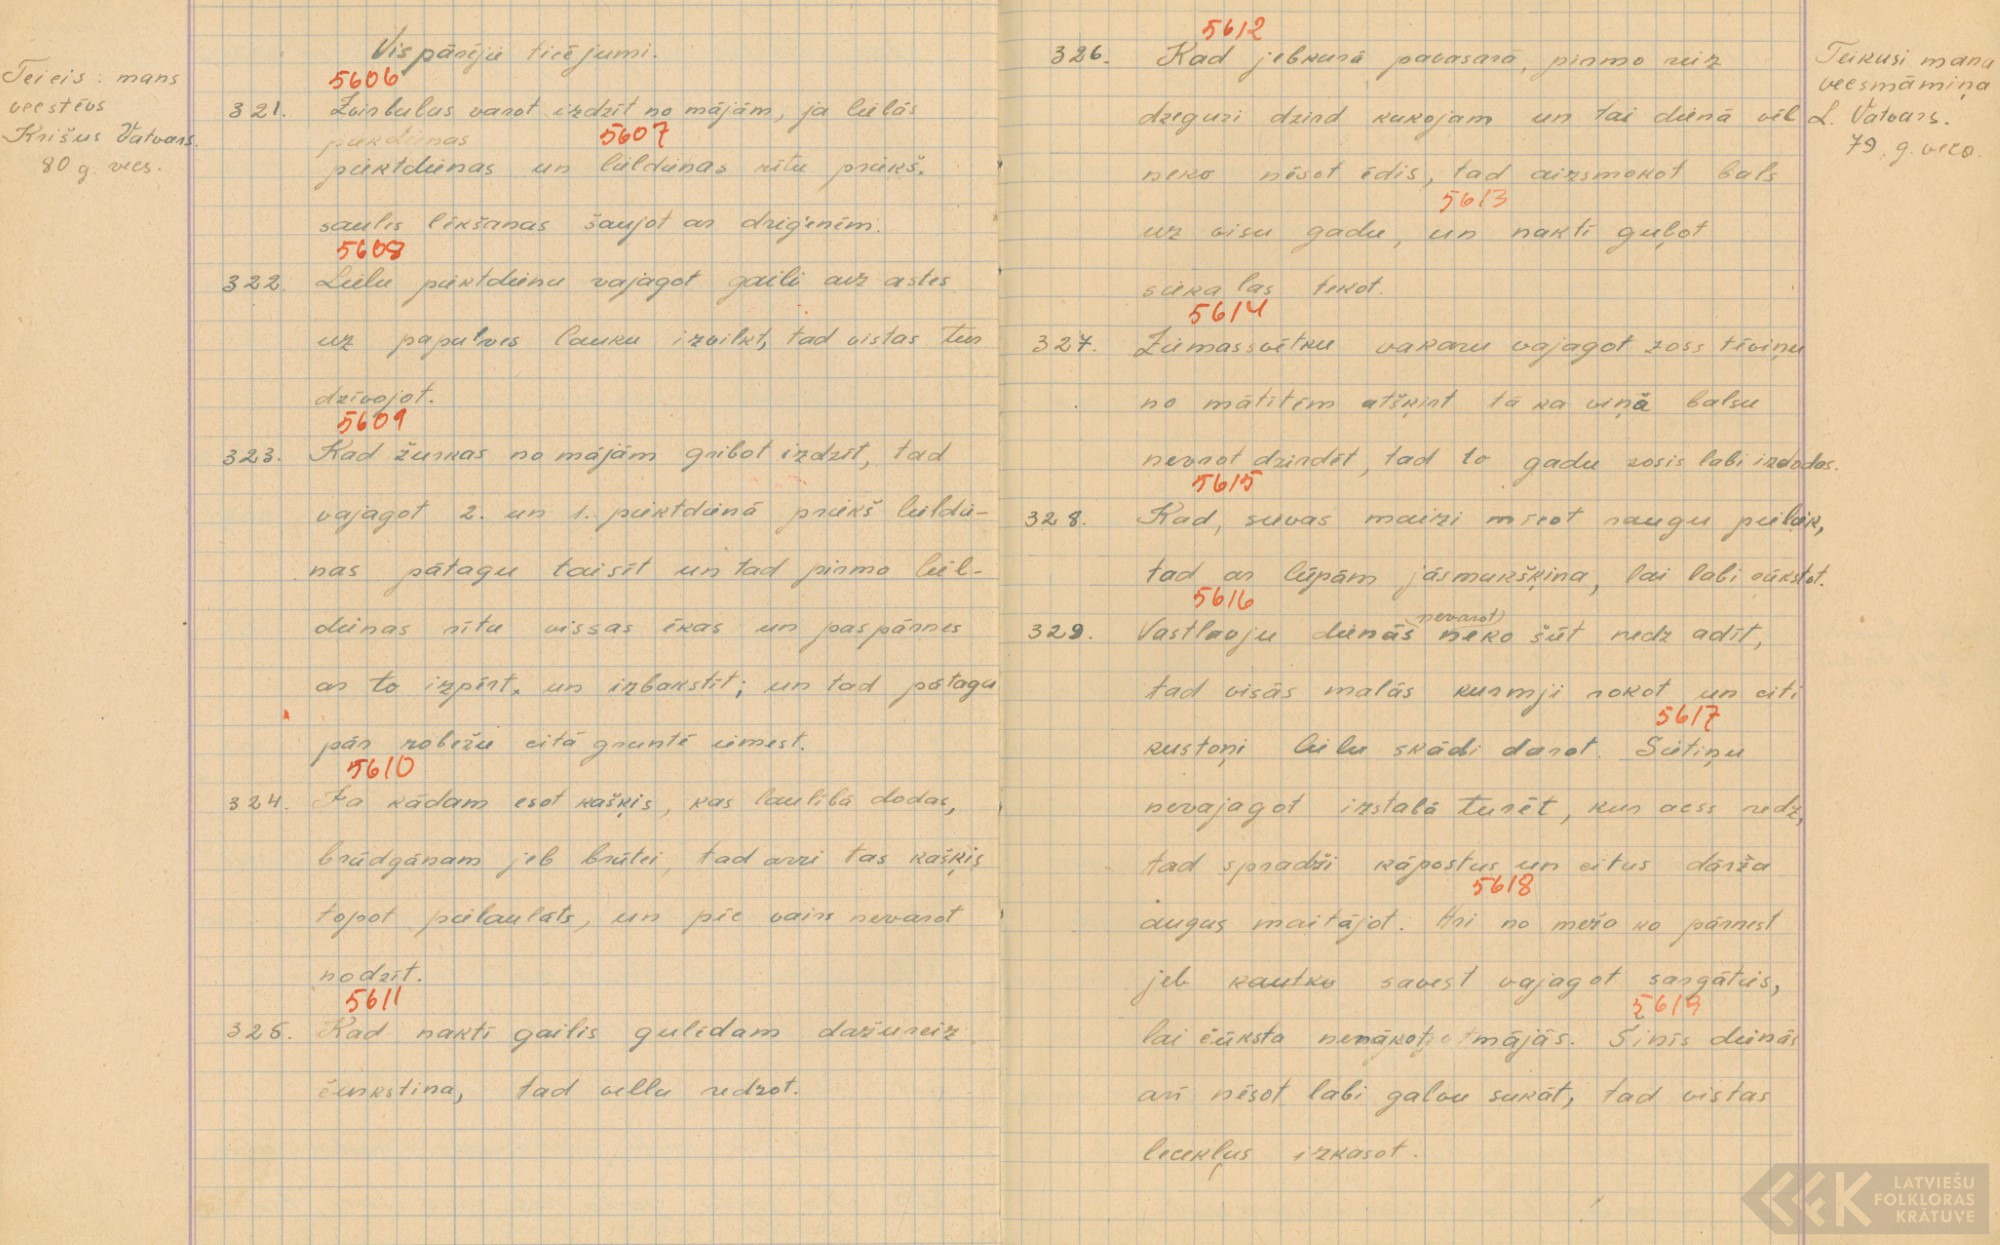 Vispārēji ticējumi.
Teicis: mans
vecstēvs
Krišus Vatvars.
80 g. vecs.
5606
321. Zvirbulus varot izdzīt no mājām, ja lielās
piekdienas
5607
piektdienas un lieldienas rītu priekš.
saules lēkšanas šaujot ar dzigenēm.
5608
322. Lielu piektdienu vajagot gaili aiz astes
uz paputves lauku izvilkt, tad vistas tur
dzīvojot.
5609
323. Kad žurkas no mājām gribot izdzīt, tad
vajagot 2. un 1. piektdienā priekš lieldie-
nas pātagu taisīt un tad pirmo liel-
dienas rītu vissas ēkas un paspārnes
ar to izpērt, un izbakstīt; un tad pātagu
pār robežu citā gruntē iemest.
5610
324. Ja kādam esot kašķis, kas laulībā dodas,
brūdgānam jeb brūtei, tad arri tas kašķis
topot pielaulāts, un pēc vairs nevarot
nodzīt.
5611
325. Kad naktī gailis guļēdam dažureiz
čurkstina, tad vellu redzot.
5612
326. Kad jebkurā pavasarā, pirmo reiz
dzeguzi dzird kukojam un tai dienā vēl
neko nēsot ēdis, tad aizsmokot bals
5613
uz visu gadu, un naktī guļot
siekalas tekot.
Teikusi mana
vecsmāmiņa
L. Vatvars.
79. g. veca.
5614
327. Ziemassvētku vakaru vajagot zoss tēviņu
no mātītēm atšķirt tā ka viņā balsu
nevarot dzirdēt, tad to gadu zosis labi izdodas.
5615
328. Kad, sievas maizi mīcot raugu pieliek,
tad ar lūpām jāsmakšķina, lai labi rūkstot.
5616
329. Vastlavju dienās (nevarot) neko šūt nedz adīt,
tad visās malās kurmji rokot un citi
5617
kustoņi lielu skādi darot. Sietiņu
nevajagot izstabā turēt, kur acss redz,
tad spradži kāpostus un citus dārža
5618
augus maitājot. Ari no meža ko pārnest
jeb kautko savest vajagot sargāties,
5619
lai čūksta nenākot mājās. Šinīs dienās
arī nēsot labi galvu sukāt, tad vistas
lecekļus izkasot.
LATVIEŠU
FOLKLORAS
KRĀTUVE